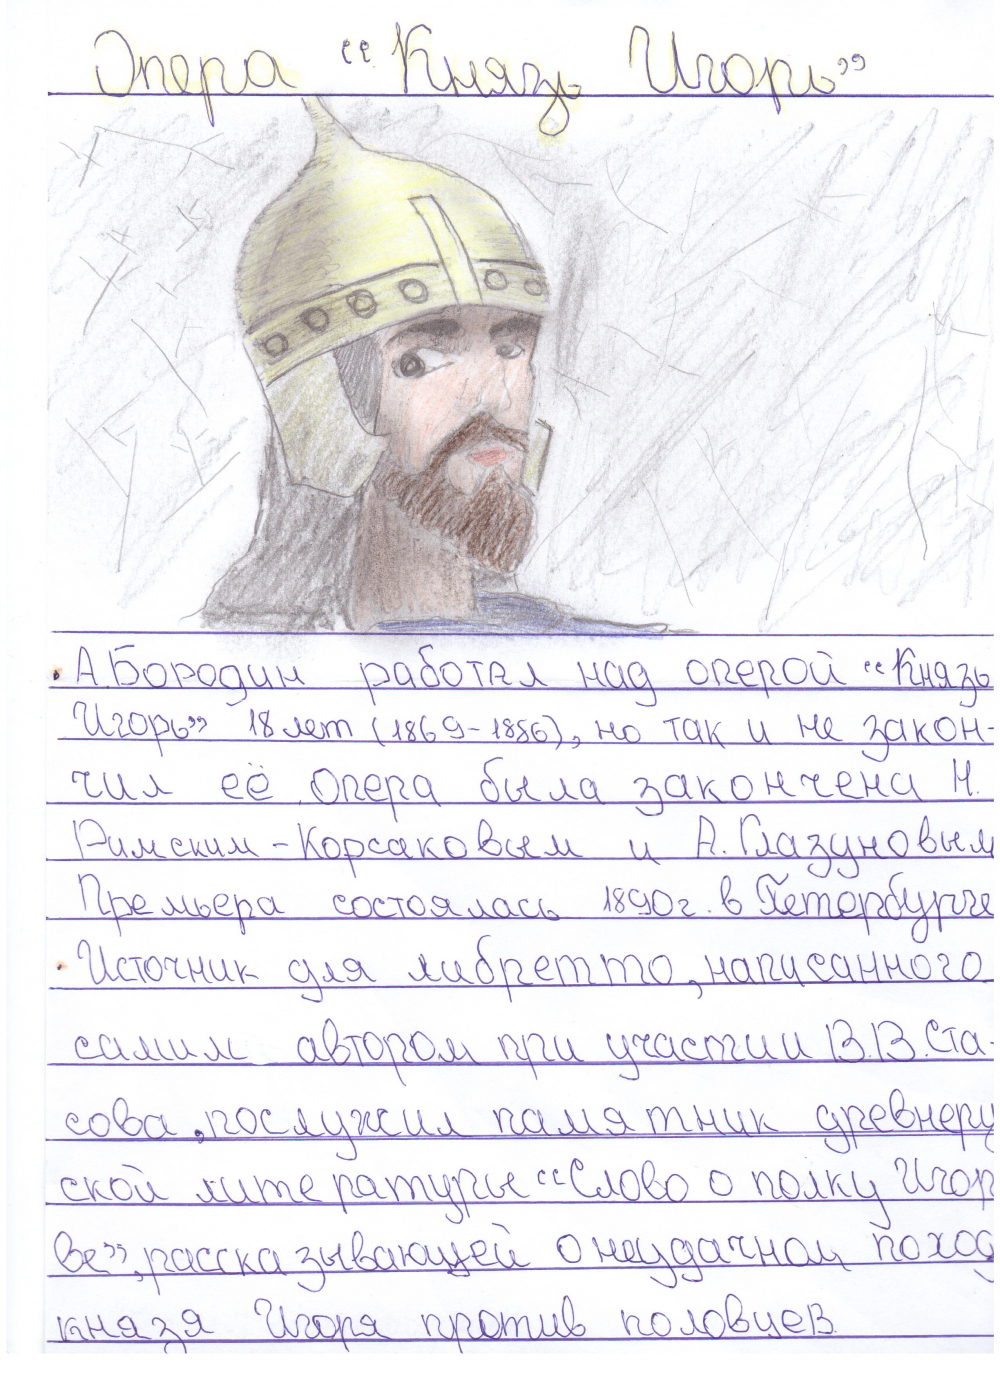 Опера “Князь Игорь”
• А.Бородин работал над оперой “Князь
Игорь” 18 лет (1869-1886), но так и не закон-
чил её. Опера была закончена Н.
Римским-Корсаковым и А. Глазуновым
Премьера состоялась 1890г. в Петербурге
• Источник для либретто, написанного
самим автором при участии В.В. Ста-
сова, послужил памятник древнеру
ской литературы “Слово о полку Игор
ве”, рассказывающей о неудачном поход
князя Игоря против половцев.